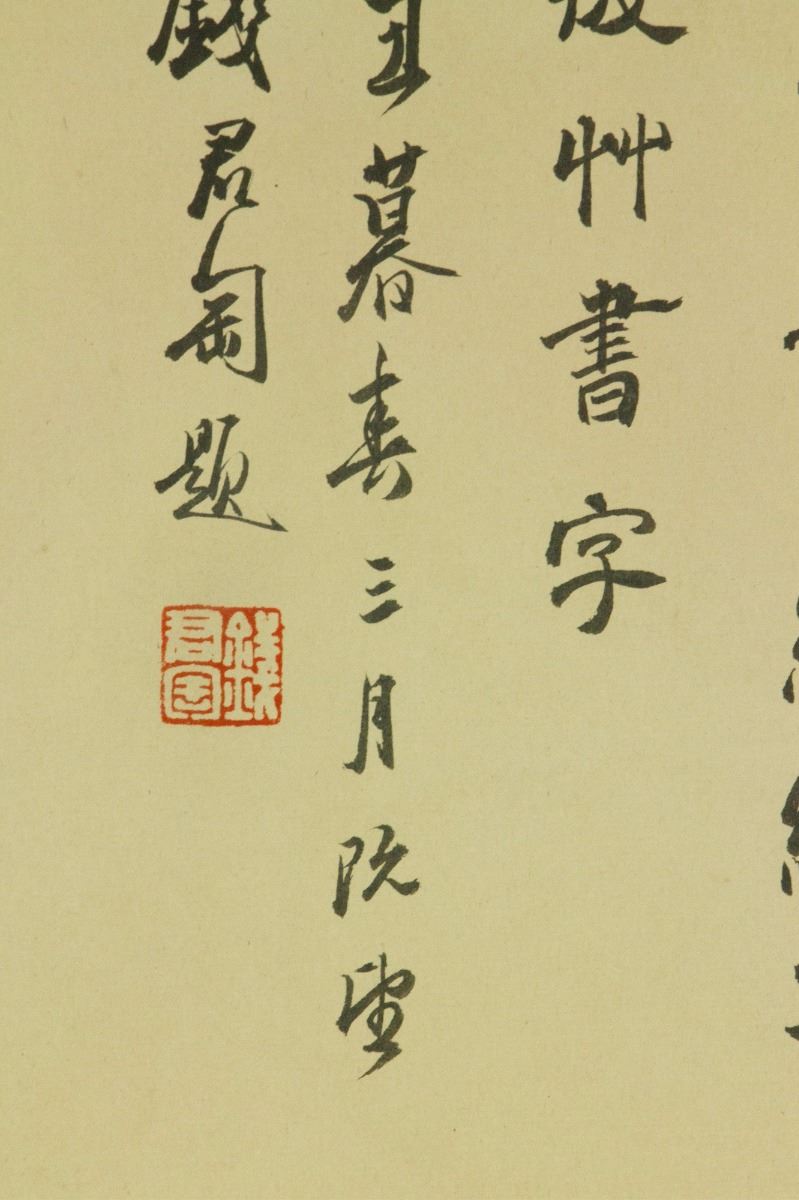 艸書字
暮春三月既望
錢君匋題
錢君匋